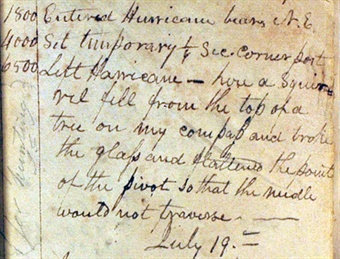 1800 Entered Hurricane bears N.E.
4000 Set temporary ¼ Sec. corner post
6500 Left Harricane — here a Squir-
rel fell from the top of a
tree on my compaß and broke
the glaß and flattened the point
of the pivot so that the needle
would not traverse. —
July 19. =